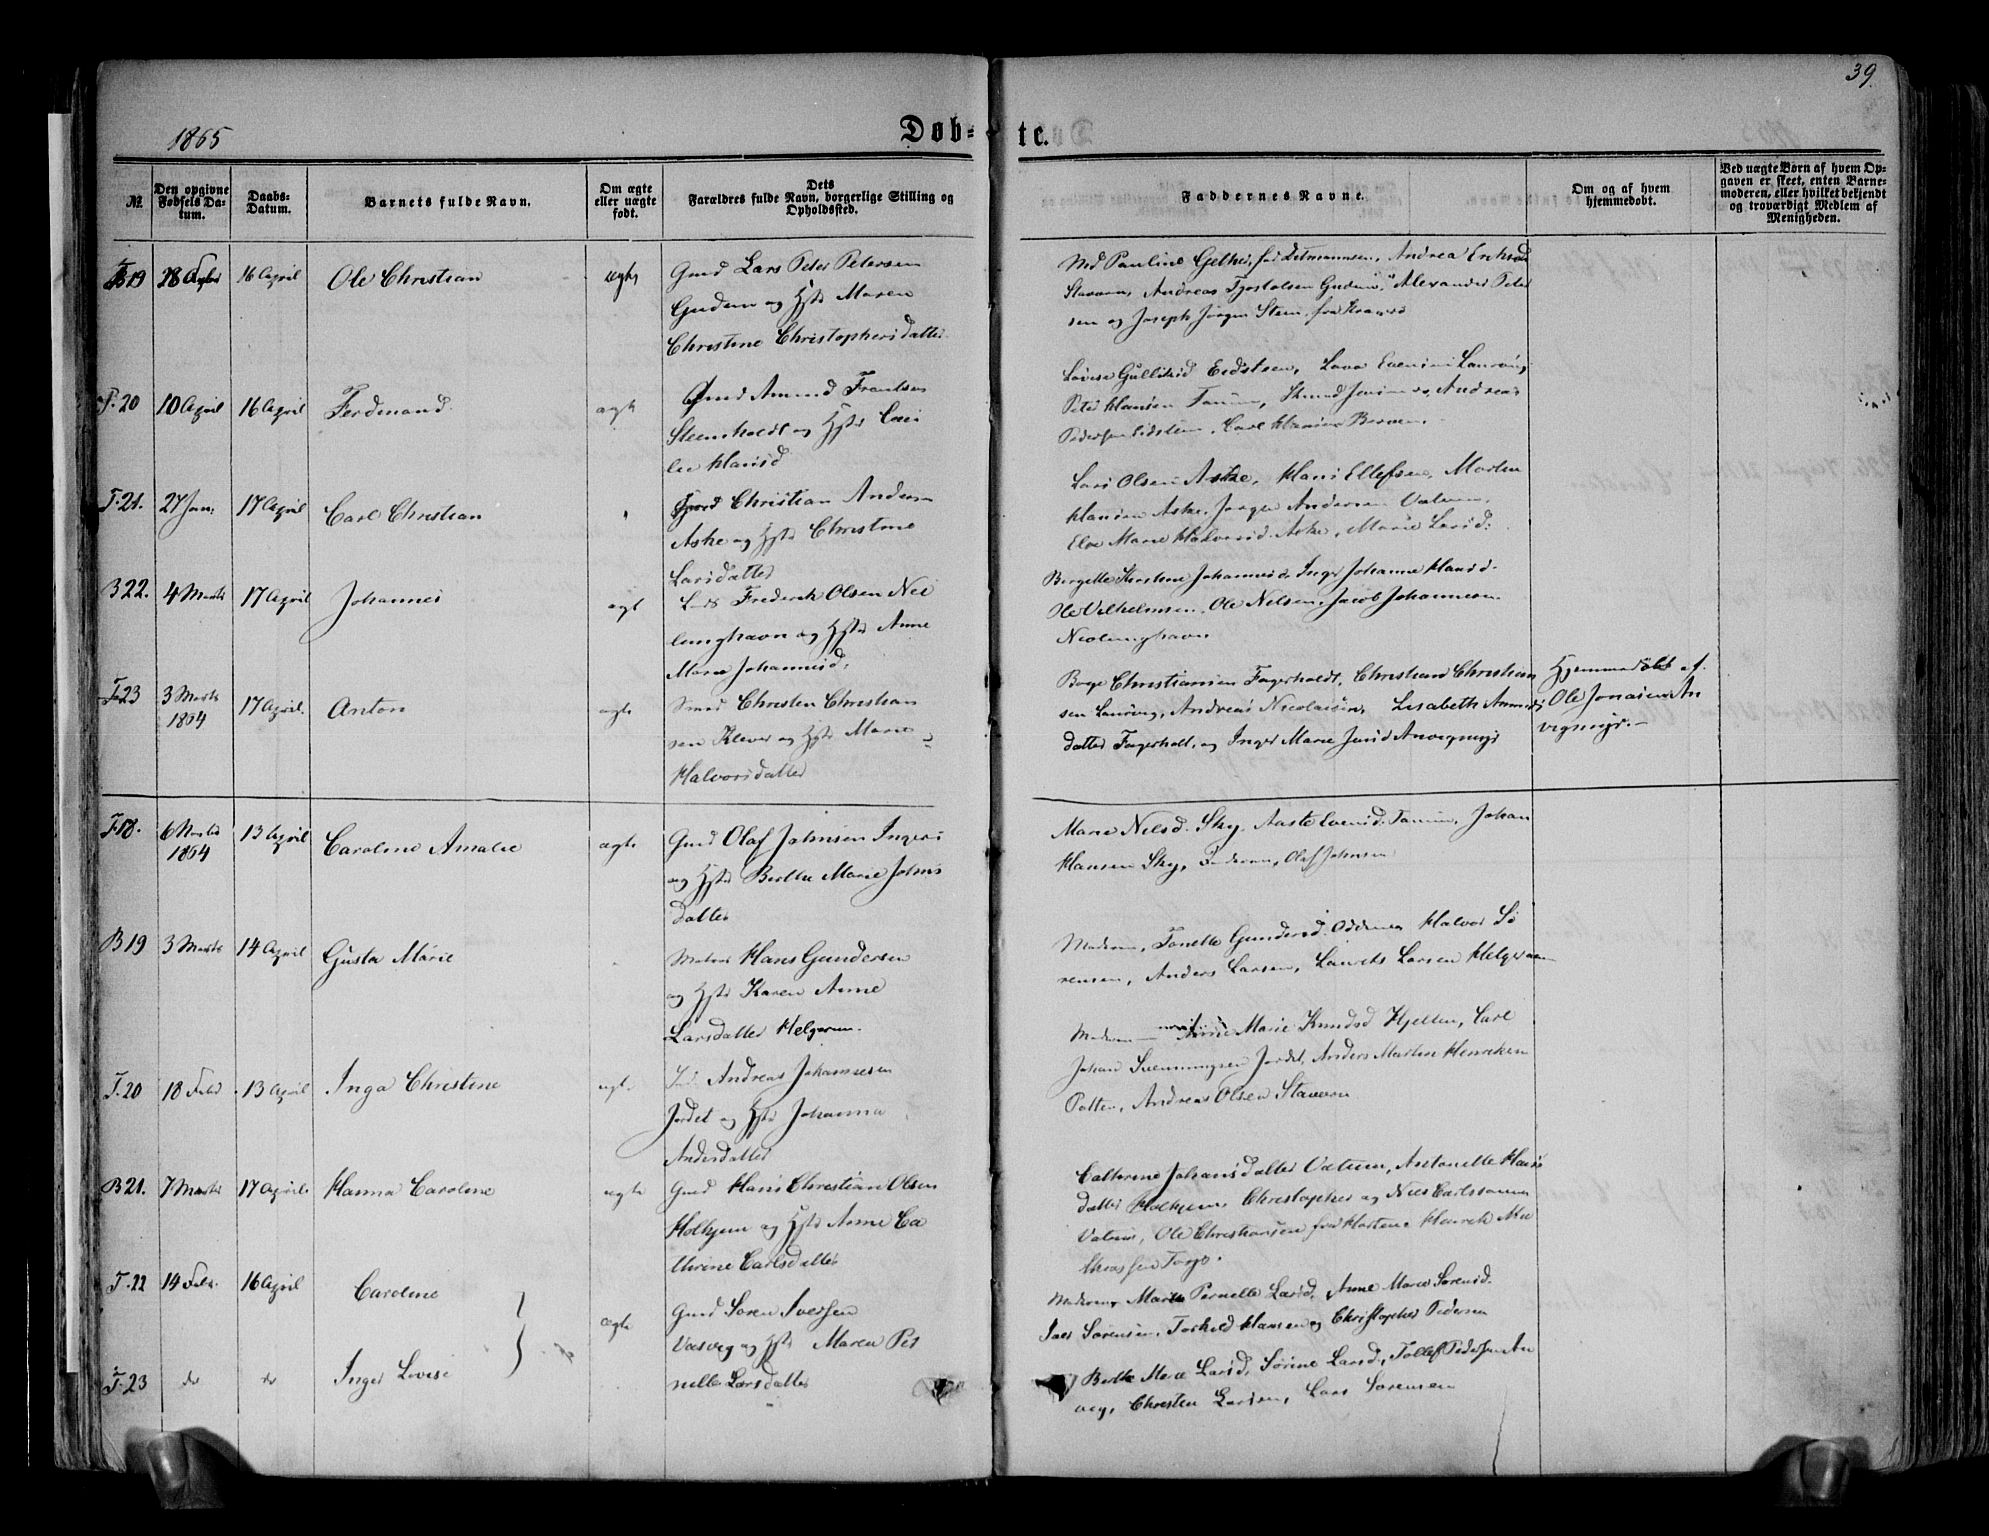 39.
1865
Døb-
te.
№
Den opgivne Fødsels Da-
tum.
Daabs-
Datum.
Barnets fulde Navn.
Om ægte
eller uægte
født.
Dets
Forældres fulde Navn, borgerlige Stilling og
Opholdssted.
Faddernes Navne.
Om og af hvem
hjemmedøbt.
Ved uægte Børn af hvem Op-
gaven er skeet, enten Barne-
moderen, eller hvilket bekjendt
og troværdigt Medlem af
Menigheden.
19 28 16 April Ole Christian ægte Gmd Lars Peter Petersen
Gudem og Hstr Maren
Christine Christophersdatter
Pauline Andrea
Stavern, Andreas Gudem, Alexander Peter
sen og Joseph Jørgen Steen, fra
F. 20 10 April 16 April Ferdinand ægte Amund Frantsen
Steensholdt og Hstr
lie Hansd
Lovise Gulliksd Eidsteen, Laurvig,
Peter Hansen Tanum, Andreas
Pedersen Eidsteen, Carl Hansen
F. 21. 27 Jan. 17 April Carl Christian " Christian Anders
Aske og Hstr Christine
Larsdatter
Lars Olsen Aske, Hans Ellefsen, Morten
Hansen Aske, Jørgen Andersen Vatum,
Else Marie Halvorsd. Aske, Marie Larsd.
B 22. 4 Marts 17 April Johannes ægt Frederik Olsen Nev
lunghavn og Hstr Anne
Marie Johannesd.
Bergitte Kirstine Johannesd, Inger Johanne Hansd.
Ole Vilhelmsen, Ole Nilsen, Jacob Johannesen
Nevlunghavn
F. 23 3 Marts
1864 17 April. Anton ægte Christen Christian
sen Klever og Hstr Maren
Halvorsdatter
Christiansen Fagerholdt, Christian Christian
sen Laurvig, Andreas Nicolaisen, Lisabeth Anders
datter Fagerholt, og Inger Marie Jonsd Anvigmyr
Hjemmedøbt af
Ole Jonasen An
vigmyr.
F 18. 6
1864 13 April Caroline Amalie ægte Gmd Olaf Johnsen
og Hstr Berthe Marie Johns
datter
Marie Nelsd. Sky, Aaste Evensd. Tanum, Johan
Hansen Sky, Faderen, Olaf Johnsen
B 19 3 Marts 14 April Gusta Marie Matros Hans Gundersen
og Hstr Karen Anne
Larsdatter Helgeroen.
Moderen, Tonette Gundersd. Oddene, Halvor Sø
rensen, Anders Larsen, Laurits Larsen Helgeroen
F. 20 18 Febr 13 April Inga Christine ægte Andreas Johannesen
Jordet og Hstr Johanna
Andersdatter
Moderen Anne Marie Knudsd Hjelten, Carl
Johan Svenningsen Jordet, Anders Martin Henriksen
Andreas Olsen Stavern
B 21. 7 Marts 17 April Hanna Caroline ægte Gmd Hans Christian Olsen
Holhjem og Hstr Anne Ca
thrine Carlsdatter
Cathrine Johansdatter Vatum, Antonette Hans
datter Holhjem, Christopher og Niels Carlssønner
Vatum, Ole Christiansen fra Henrik Ma
thiassen Torp.
F. 22 14 Febr. 16 April Caroline ægte Gmd Søren Iversen
Vasvig og Hstr Maren Per
nelle Larsdatter
Moderen, Marthe Pernelle Larsd, Anne Marie Sørensd.
Sørensen, Torkild Hansen og Christopher Pedersen
F. 23 do do Inger Lovise
Berthe Marie Larsd, Sørine Larsd, Tollef Pedersen An
vig, Christen Larsen, Lars Sørensen